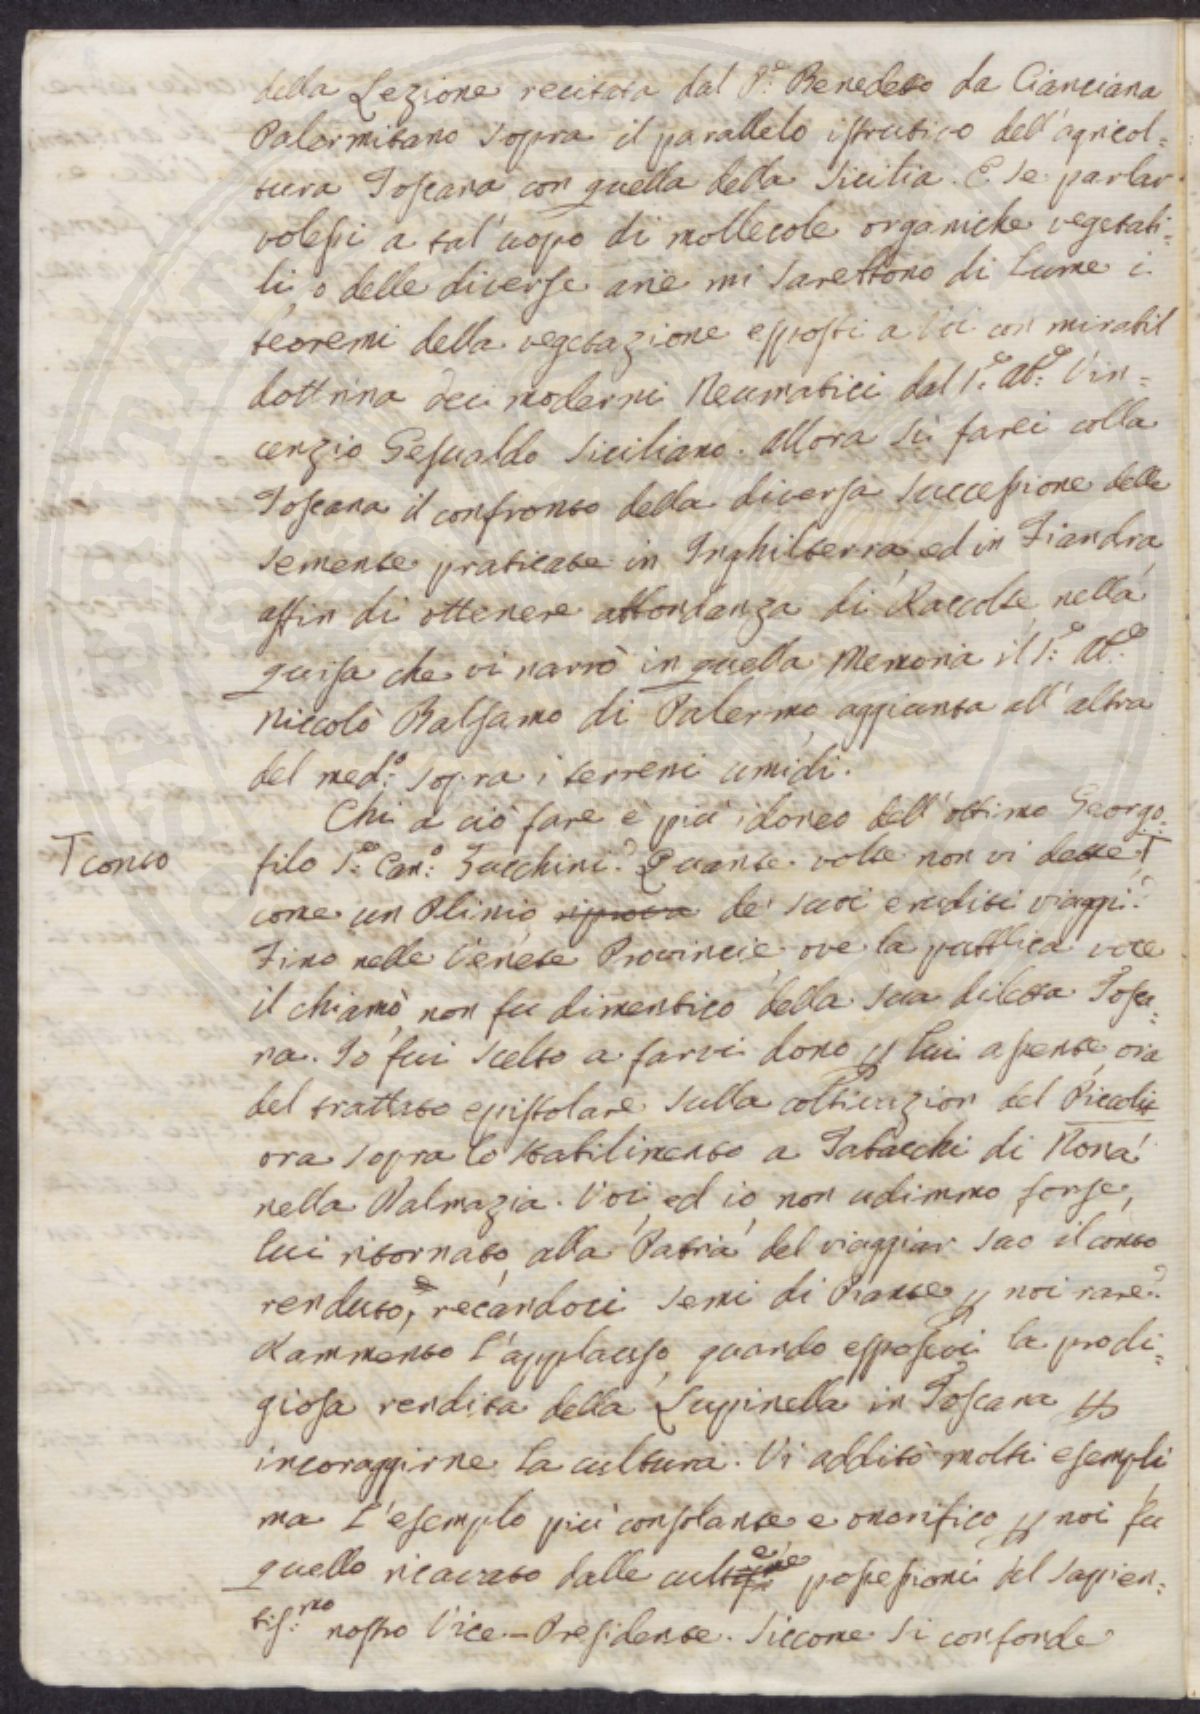 della Lezione recitata dal P.e Benedetto da Cianciana
Palermitano sopra il parallelo istrutivo dell'agricol=
tura Toscana con quella della Sicilia. E se parlar
volessi a tal'uopo di mollecole organiche vegetabi=
li, o delle diverse arie mi sarebbono di lume i
teoremi della vegetazione esposti a Voi con mirabil
dottrina dei moderni Neumatici dal S.e Ab.e Vin=
cenzio Gesualdo Siciliano. Allora sì farei colla
Toscana il confronto della diversa successione delle
semente praticate in Inghilterra, ed in Fiandra
affin di ottenere abbondanza di Raccolte, nella
guisa che vi narrò in quella Memoria il S.e Ab.e
Niccolò Balsamo di Palermo, aggiunta all'altra
del med.o sopra i terreni umidi.
Chi a ciò fare è più idoneo dell'ottimo Georgo=
filo S.e Can.o Zucchini? Quante volte non vi dette T
T conto
come un Plinio riprova de' suoi eruditi viaggi?
Fino nelle Venete Provincie, ove la pubblica voce
il chiamò, non fu dimentico della sua diletta Tosca=
na. Io fui scelto a farvi dono p lui assente, ora
del trattato epistolare sulla coltivazion del Piccolit
ora sopra lo stabilimento a Tabacchi di Nona
nella Dalmazia. Voi, ed io, non udimmo forse,
lui ritornato alla Patria del viaggiar suo il conto
renduto, e recandoci semi di Piante p noi rare?
Rammento l'applauso, quando esposevi la prodi=
giosa rendita della Lupinella in Toscana p
incoraggirne la cultura. Vi additò molti esempli
ma l'esemplo più consolante e onorifico p noi fu
quello ricavato dalle culte possessioni del sapien=
tis.mo nostro Vice-Presidente. Siccome si confonde